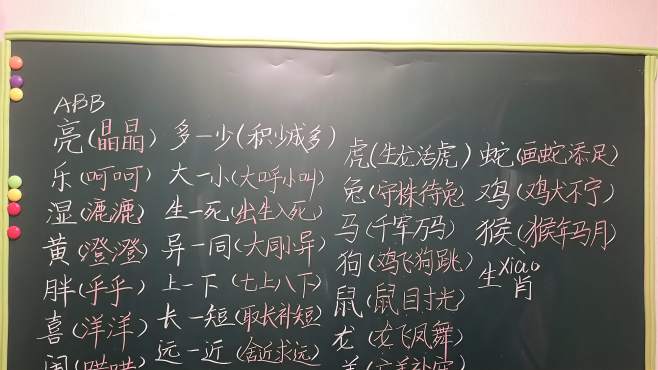 ABB
亮(晶晶)
乐(呵呵)
湿(漉漉)
黄(澄澄)
胖(乎乎)
喜(洋洋)
多—少(积少成多)
大—小(大呼小叫)
生—死(出生入死)
异—同(大同小异)
上—下(七上八下)
长—短(取长补短)
远—近(舍近求远)
虎(生龙活虎)
兔(守株待兔)
马(千军万马)
狗(鸡飞狗跳)
鼠(鼠目寸光)
龙(龙飞凤舞)
蛇(画蛇添足)
鸡(鸡犬不宁)
猴(猴年马月)
xiào
生肖